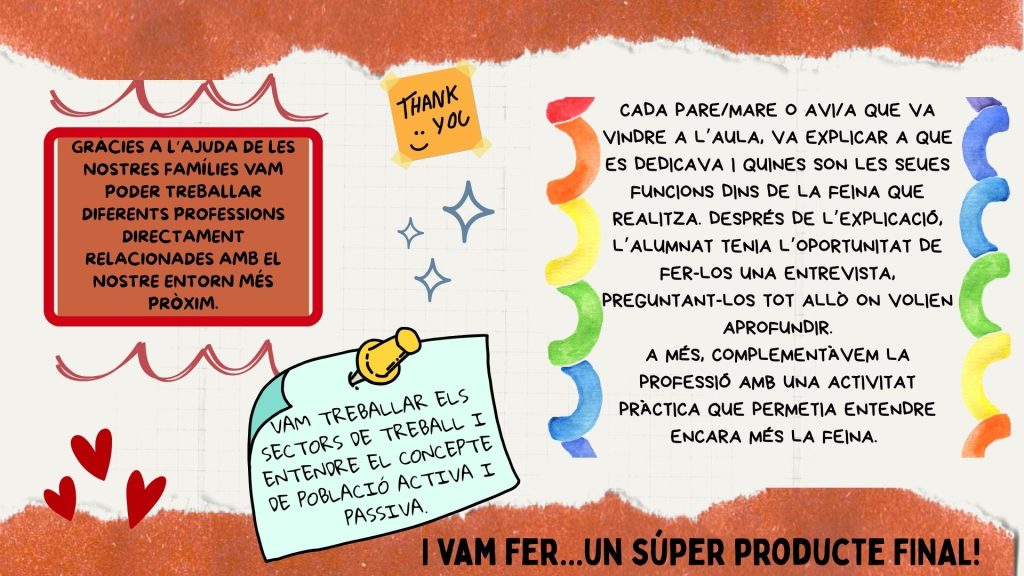 GRÀCIES A L'AJUDA DE LES
NOSTRES FAMÍLIES VAM
PODER TREBALLAR
DIFERENTS PROFESSIONS
DIRECTAMENT
RELACIONADES AMB EL
NOSTRE ENTORN MÉS
PRÒXIM.
THANK
YOU
CADA PARE/MARE O AVI/A QUE VA
VINDRE A L'AULA, VA EXPLICAR A QUE
ES DEDICAVA I QUINES SON LES SEUES
FUNCIONS DINS DE LA FEINA QUE
REALITZA. DESPRÉS DE L'EXPLICACIÓ,
L'ALUMNAT TENIA L'OPORTUNITAT DE
FER-LOS UNA ENTREVISTA,
PREGUNTANT-LOS TOT ALLÒ ON VOLIEN
APROFUNDIR.
A MÉS, COMPLEMENTÀVEM LA
PROFESSIÓ AMB UNA ACTIVITAT
PRÀCTICA QUE PERMETIA ENTENDRE
ENCARA MÉS LA FEINA.
VAM TREBALLAR ELS
SECTORS DE TREBALL I
ENTENDRE EL CONCEPTE
DE POBLACIÓ ACTIVA I
PASSIVA.
I VAM FER...UN SÚPER PRODUCTE FINAL!